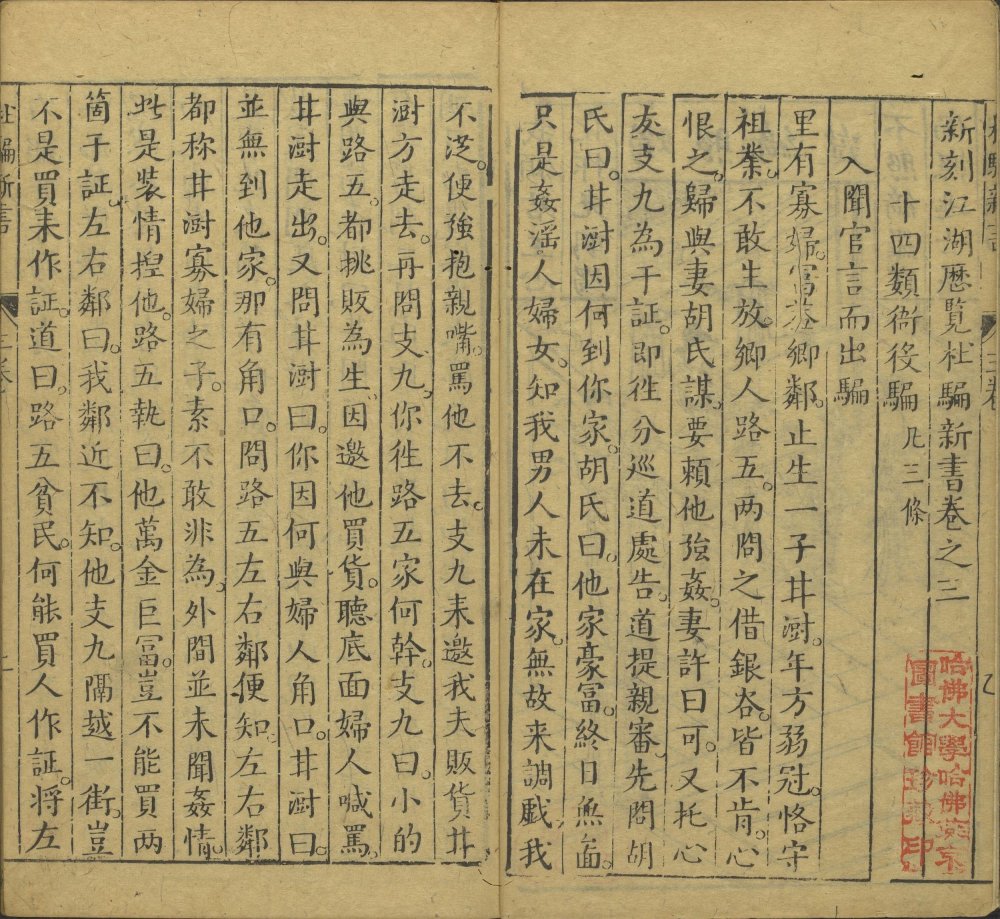 新刻江湖歷覽杜騙新書卷之三
十四類衙役騙 凡三條
入聞官言而出騙
里有寡婦。富葢鄉鄰。止生一子井澍。年方弱冠。恪守
祖業。不敢生放。鄉人路五。两問之借銀谷。皆不肯。心
恨之。歸與妻胡氏謀。要賴他強姦。妻許曰可。又托心
友支九為干証。即徃分巡道處告。道提親審。先問胡
氏曰。井澍因何到你家。胡氏曰。他家豪冨。終日無
只是姦淫人婦女。知我男人未在家。無故来調戱我
不従。便強抱親嘴。罵他不去。支九来邀我夫販貨。井
澍方走去。再問支九。你徃路五家何幹。支九曰。小的
與路五。都挑販為生。因邀他買貨。聽底面婦人喊罵。
井澍走出。又問井澍曰。你因何與婦人角口。井澍曰。
並無到他家。那有角口。問路五左右鄰便知。左右鄰
都称井澍寡婦之子。素不敢非為。外間並未聞姦情。
此是裝情揑他。路五執曰。他萬金巨冨。豈不能買两
箇干証。左右鄰曰。我鄰近不知。他支九隔越一街。豈
不是買来作証。道曰。路五貧民。何能買人作証。将左
杜騙新書 三卷 一
哈佛大學哈佛燕京圖書館珍藏印